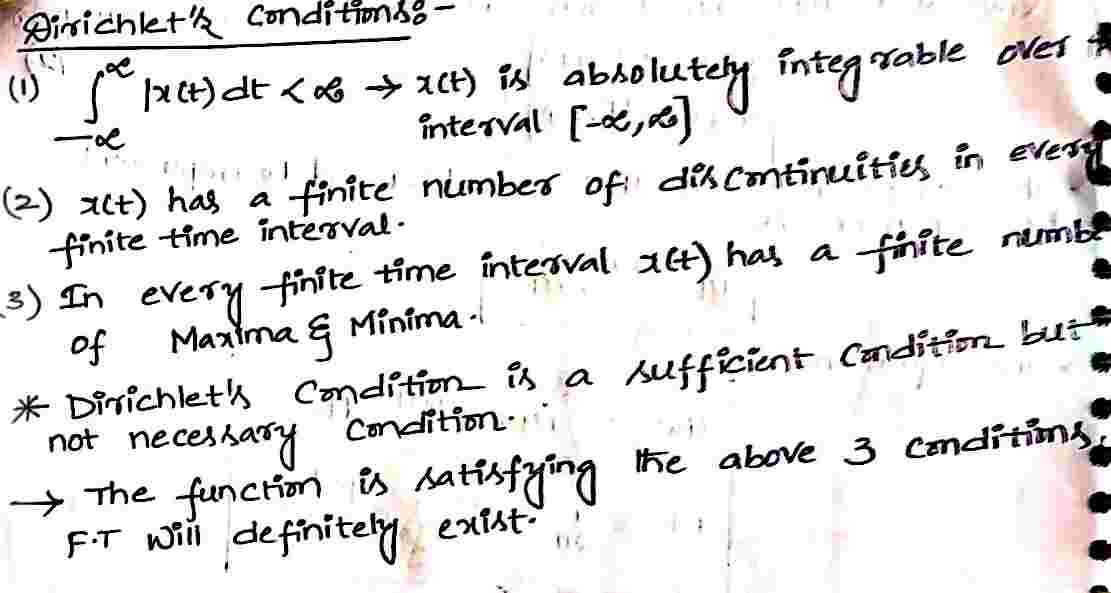 Dirichlet's Conditions:-
(1) ∫_{-∞}^{∞} |x(t)| dt < ∞ → x(t) is absolutely integrable over
interval [-∞,∞]
(2) x(t) has a finite number of discontinuities in every
finite time interval.
3) In every finite time interval x(t) has a finite numbe
of Maxima & Minima.
* Dirichlet's Condition is a sufficient Condition but
not necessary Condition.
→ The function is satisfying the above 3 conditions,
F.T will definitely exist.